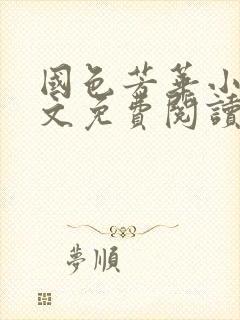 國色芳華小
文免費閱讀
夢順